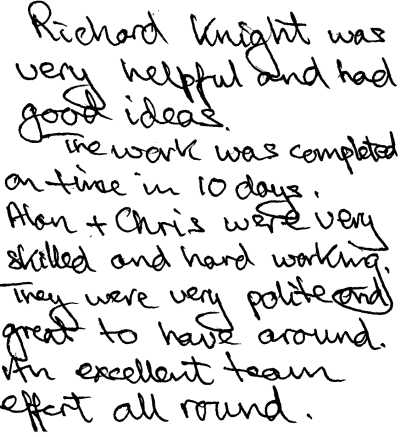 Richard Knight was
very helpful and had
good ideas.
The work was completed
on time in 10 days.
Alan + Chris were very
skilled and hard working.
They were very polite and
great to have around.
An excellent team
effort all round.